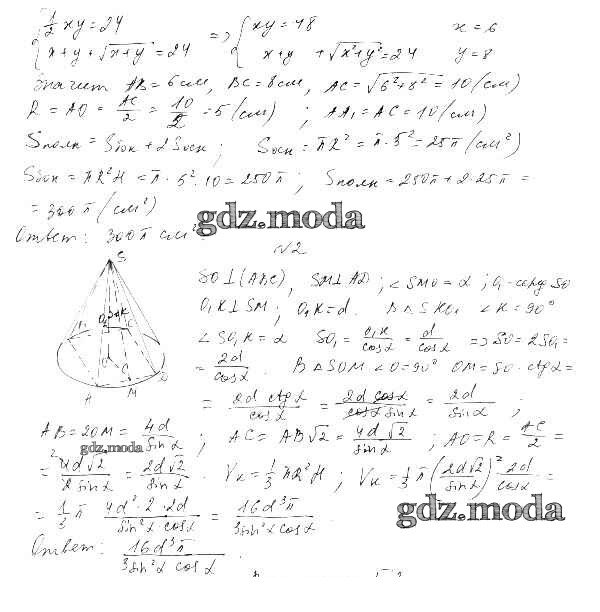 { 1/2 xy = 24 => { xy = 48 x = 6
x + y + √(x+y) = 24 x + y + √(x²+y²) = 24 y = 8
Значит AB = 6 см, BC = 8 см, AC = √(6²+8²) = 10 (см)
R = AO = AC/2 = 10/2 = 5 (см) ; AA₁ = AC = 10 (см)
Sполн = Sбок + 2Sосн ; Sосн = πR² = π·5² = 25π (см²)
Sбок = πR²H = π·5²·10 = 250π ; Sполн = 250π + 2·25π =
= 300π (см²)
gdz.moda
Ответ: 300π см²
№2
S
SO⊥(ABC), SM⊥AD ; ∠SMO = α ; O₁-серед SO
O₁K⊥SM ; O₁K = d. В △SKO₁ ∠K = 90°
∠SO₁K = α SO₁ = O₁K/cosα = d/cosα => SO = 2SO₁ =
= 2d/cosα. В △SOM ∠O = 90° OM = SO·ctgα =
= 2d ctgα/cosα = 2d cosα/cosα sinα = 2d/sinα ;
A M D
AB = 2OM = 4d/sinα ; AC = AB√2 = 4d√2/sinα ; AO = R = AC/2 =
gdz.moda
= 4d√2/2 sinα = 2d√2/sinα. Vк = 1/3 πR²H ; Vк = 1/3 π (2d√2/sinα)² 2d/cosα =
= 1/3 π 4d²·2·2d/sin²α cosα = 16d³π/3sin²α cosα
gdz.moda
Ответ: 16d³π/3sin²α cosα